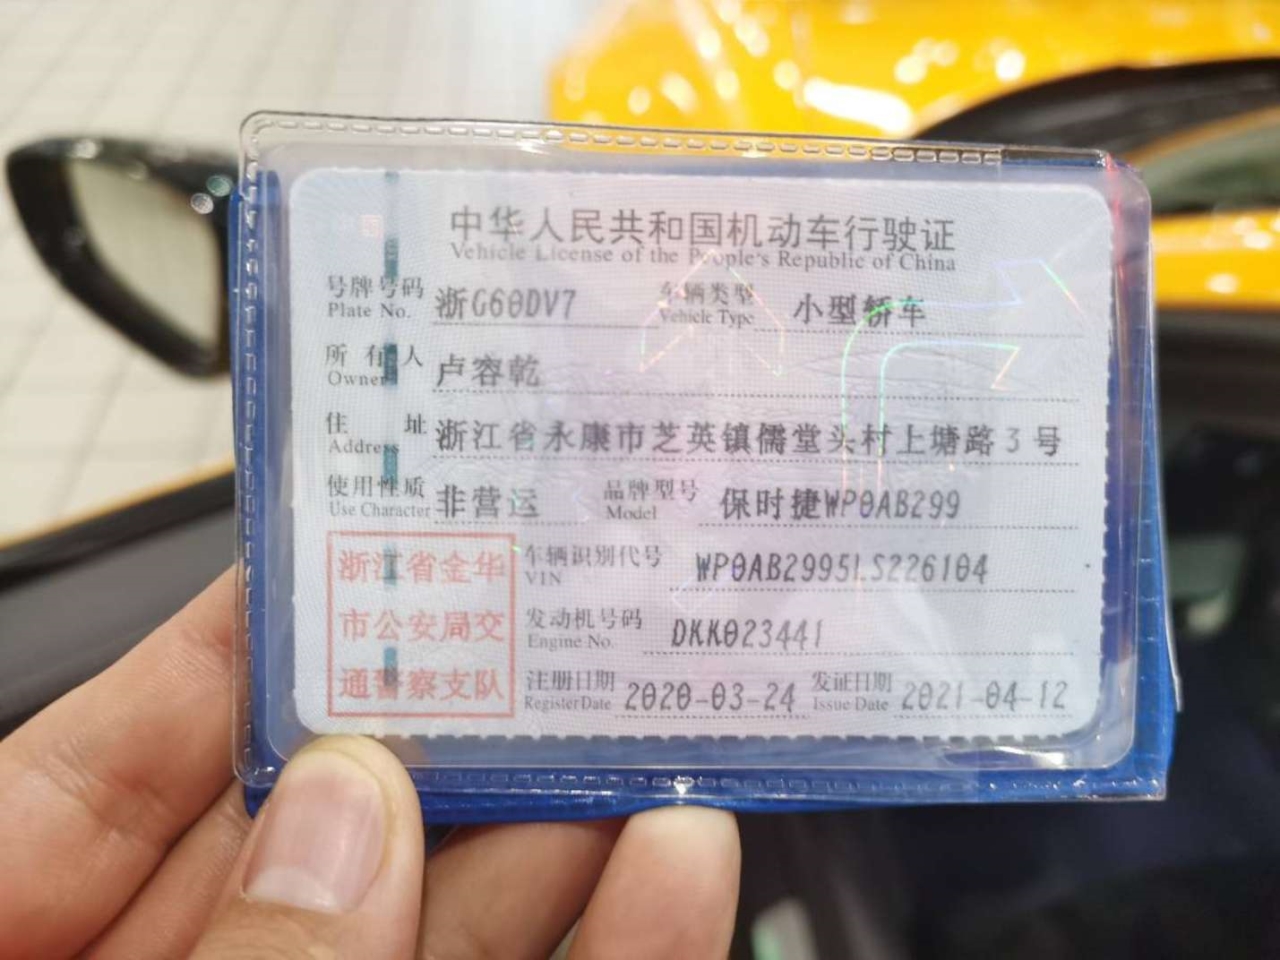 中华人民共和国机动车行驶证
Vehicle License of the People's Republic of China
号牌号码 浙G60DV7 车辆类型 小型轿车
Plate No. Vehicle Type
所有人 卢容乾
Owner
住址 浙江省永康市芝英镇儒堂头村上塘路3号
Address
使用性质 非营运 品牌型号 保时捷WP0AB299
Use Character Model
浙江省金华
市公安局交
通警察支队
车辆识别代号 WP0AB2995LS226104
VIN
发动机号码 DKK023441
Engine No.
注册日期 2020-03-24 发证日期 2021-04-12
Register Date Issue Date